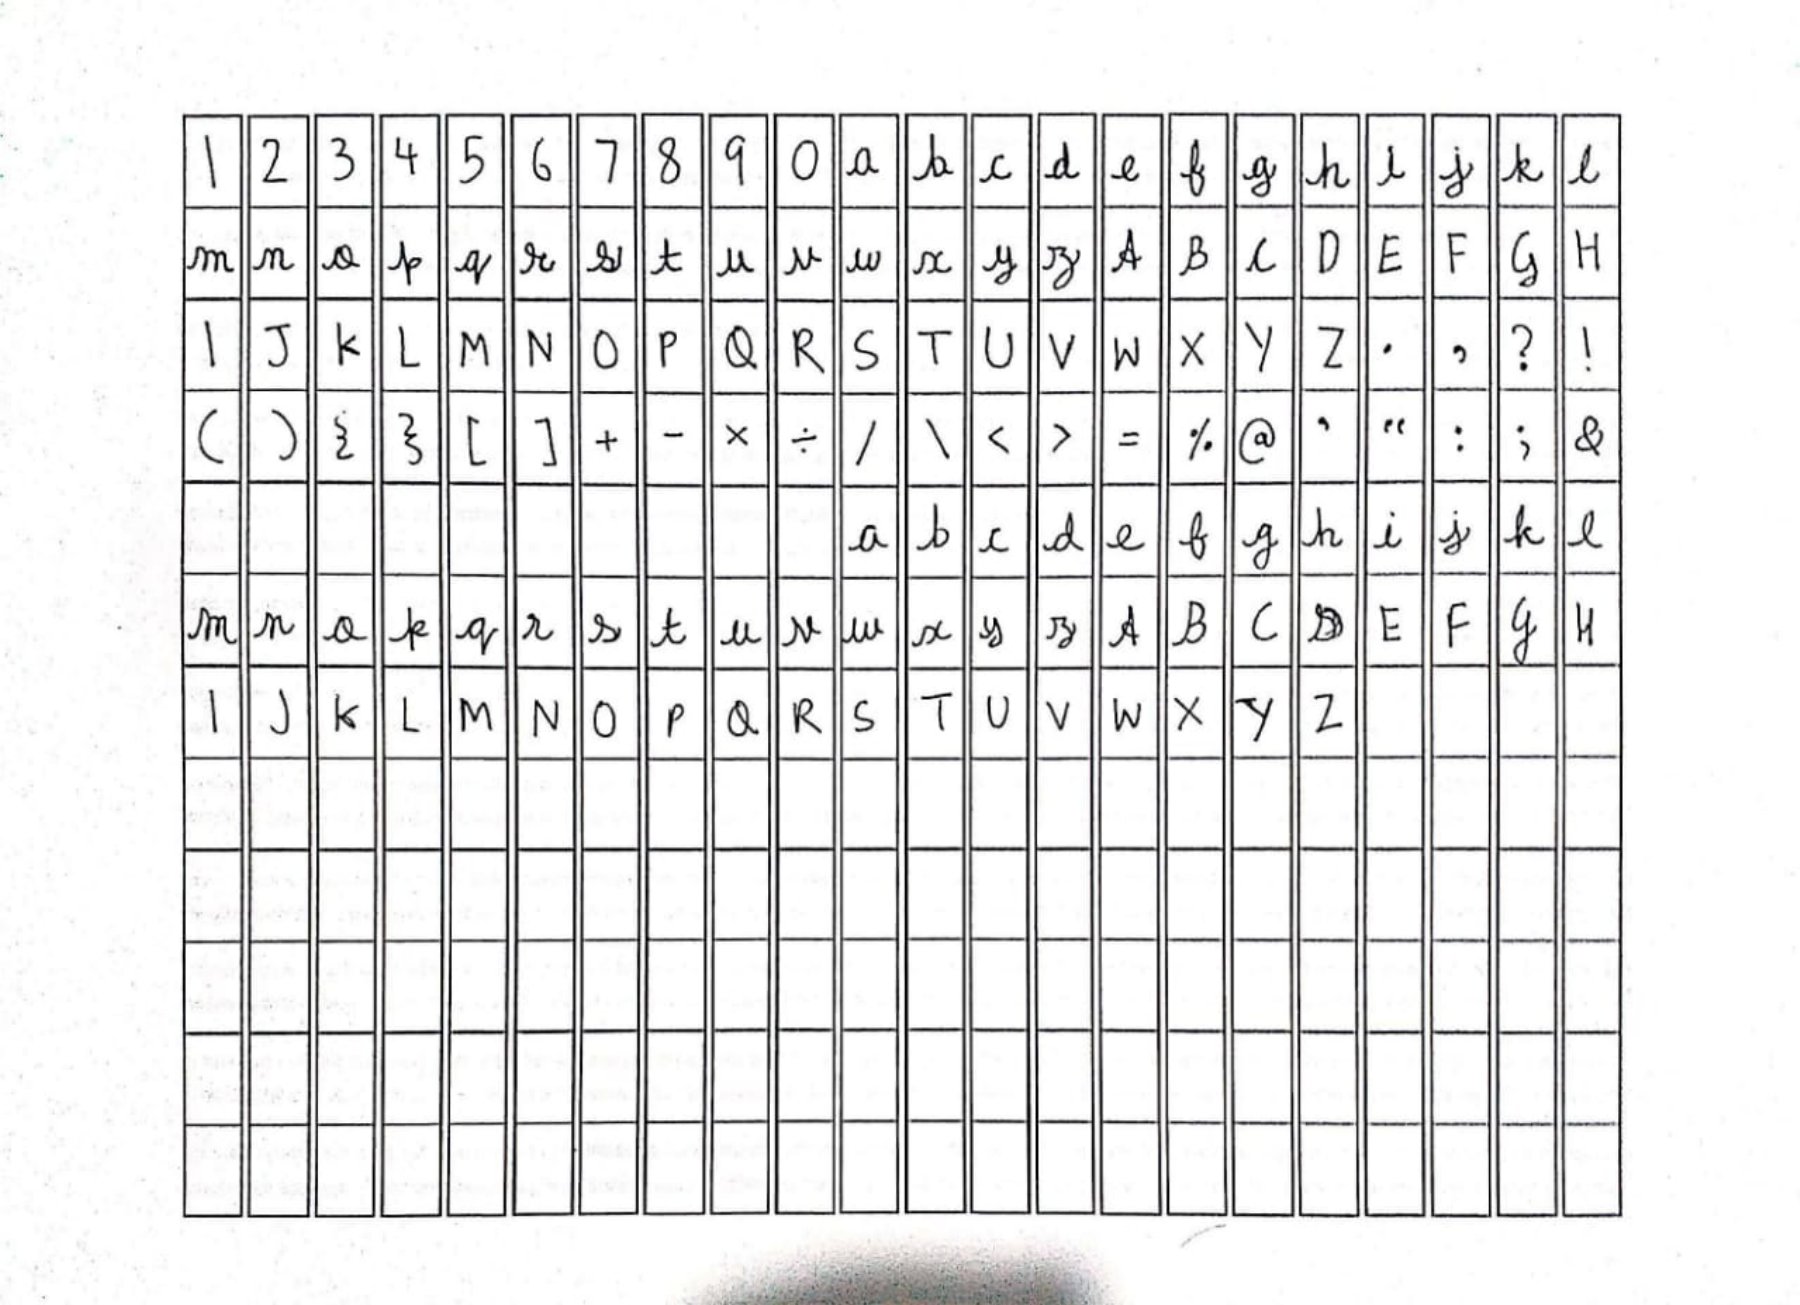 1 2 3 4 5 6 7 8 9 0 a b c d e f g h i j k l
m n o p q r s t u v w x y z A B C D E F G H
I J K L M N O P Q R S T U V W X Y Z . , ? !
( ) { } [ ] + - × ÷ / \ < > = % @ ' “ : ; &
a b c d e f g h i j k l
m n o p q r s t u v w x y z A B C D E F G H
I J K L M N O P Q R S T U V W X Y Z